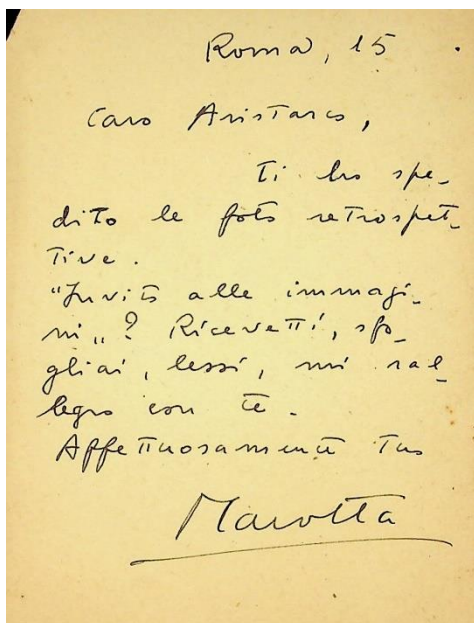 Roma, 15
Caro Aristarco,
Ti ho spe-
dito le foto retrospet-
tive.
"Invito alle immagi-
ni„? Ricevetti, sfo-
gliai, lessi, mi ral-
legro con te.
Affettuosamente tuo
Marotta